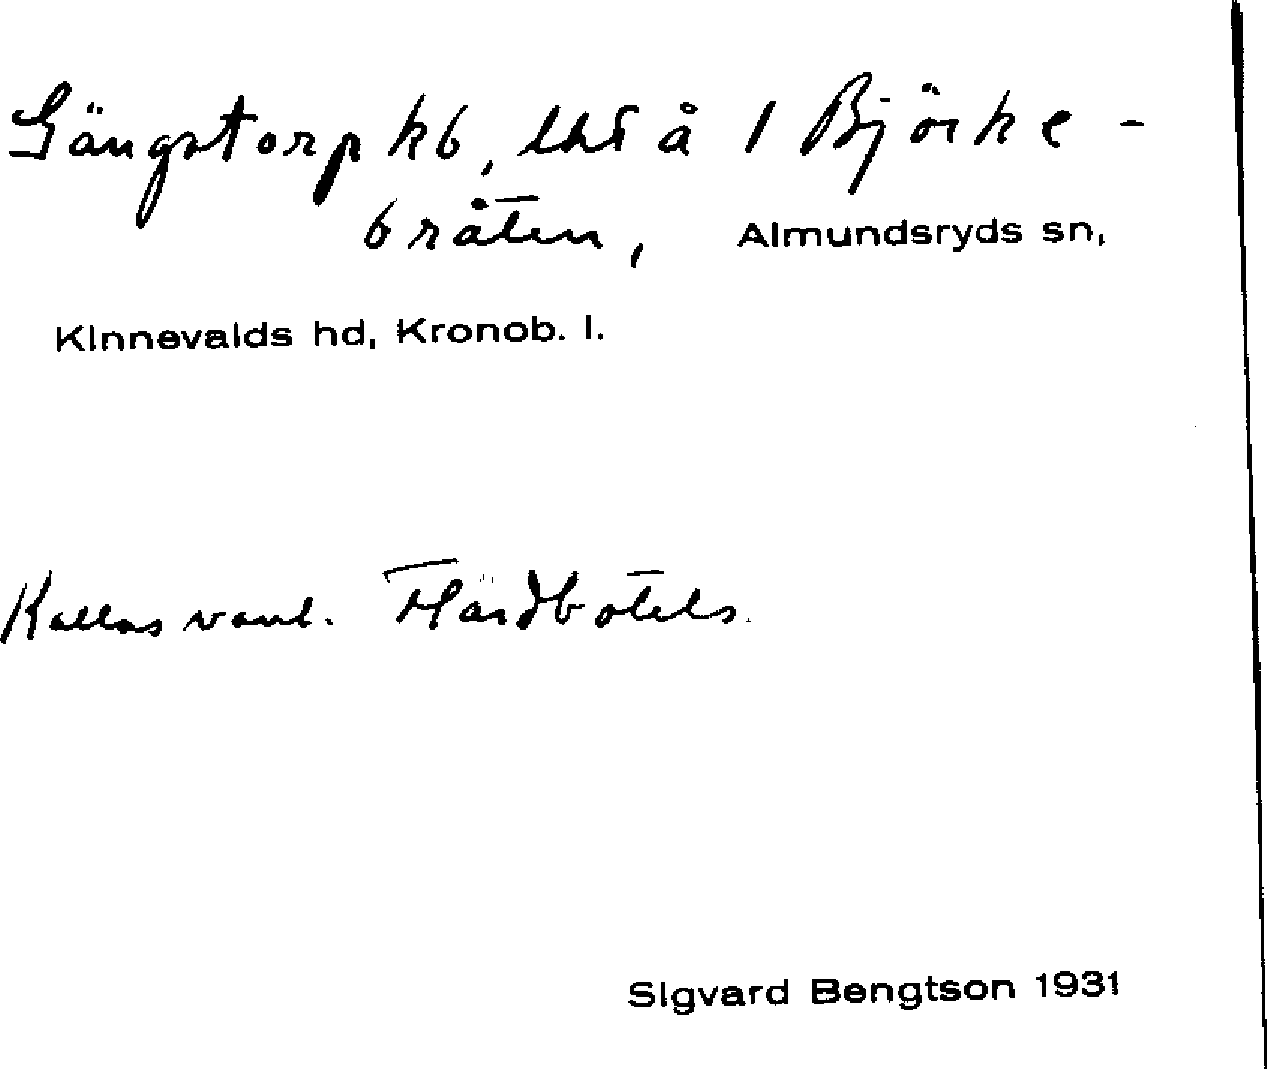 Gängstorp kb, lht å 1 Björke-
bråten, Almundsryds sn,
Kinnevalds hd, Kronob. l.
Kallas vanl.
Sigvard Bengtson 1931